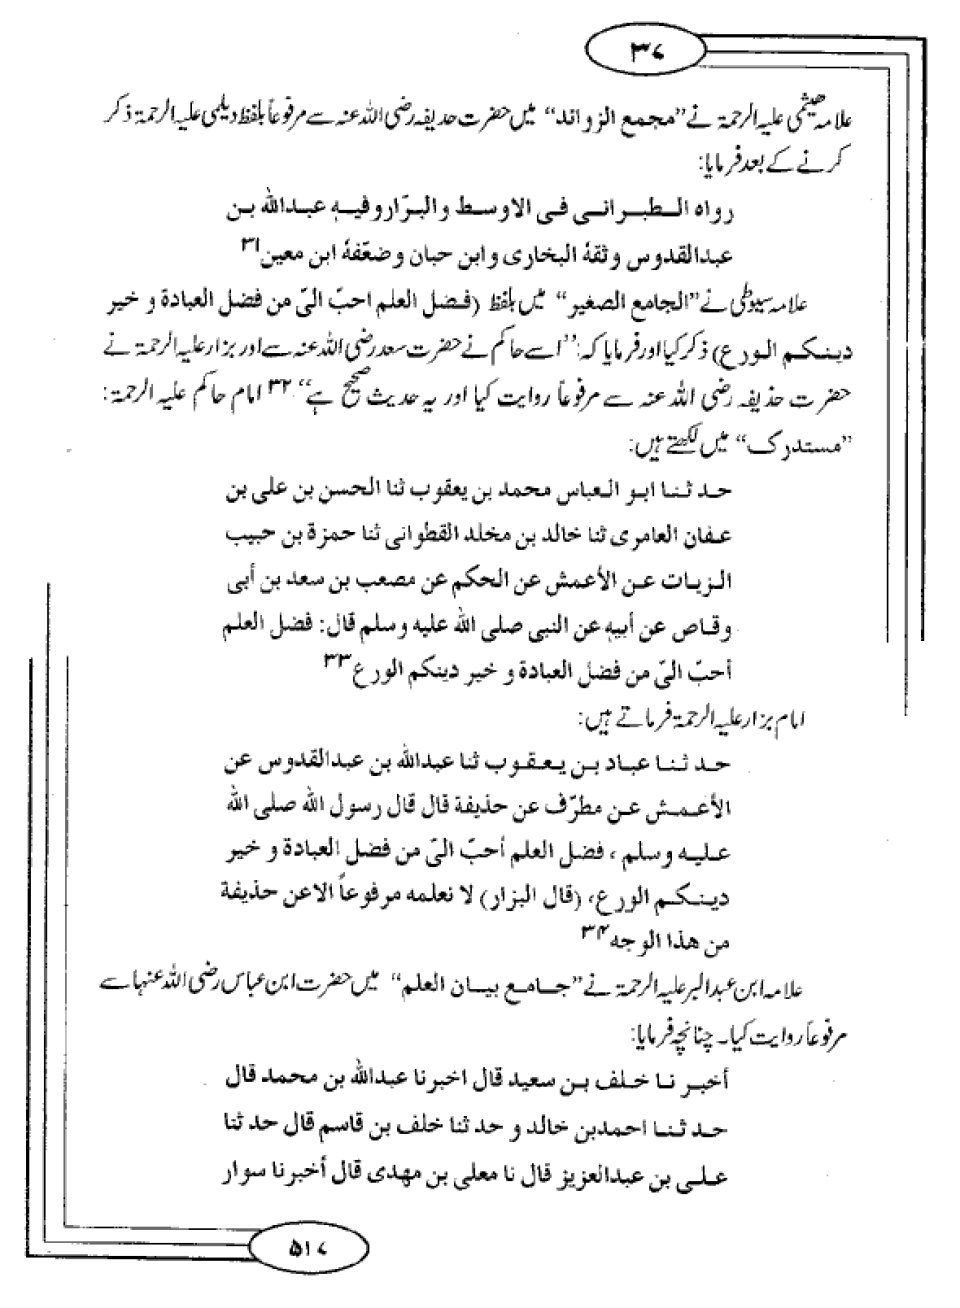 ۳۷
علامہ ھیثمی علیہ الرحمۃ نے ”مجمع الزوائد“ میں حضرت حدیفہ رضی اللہ عنہ سے مرفوعاً بلفظ دیلمی علیہ الرحمۃ ذکر
کرنے کے بعد فرمایا:
رواه الطبرانی فی الاوسط والبزار وفیه عبدالله بن
عبدالقدوس وثقهٔ البخاری وابن حبان وضعّفهٔ ابن معین ۳۱
علامہ سیوطی نے ”الجامع الصغیر“ میں بلفظ (فضل العلم احبّ الیّ من فضل العبادة و خیر
دینکم الورع) ذکر کیا اور فرمایا کہ: ”اسے حاکم نے حضرت سعد رضی اللہ عنہ سے اور بزار علیہ الرحمۃ نے
حضرت حذیفہ رضی اللہ عنہ سے مرفوعاً روایت کیا اور یہ حدیث صحیح ہے“ ۳۲ امام حاکم علیہ الرحمۃ:
”مستدرک“ میں لکھتے ہیں:
حدثنا ابو العباس محمد بن یعقوب ثنا الحسن بن علی بن
عفان العامری ثنا خالد بن مخلد القطوانی ثنا حمزة بن حبیب
الزیات عن الأعمش عن الحکم عن مصعب بن سعد بن أبی
وقاص عن أبیه عن النبی صلی الله علیه وسلم قال: فضل العلم
أحبّ الیّ من فضل العبادة و خیر دینکم الورع ۳۳
امام بزار علیہ الرحمۃ فرماتے ہیں:
حدثنا عباد بن یعقوب ثنا عبدالله بن عبدالقدوس عن
الأعمش عن مطرّف عن حذیفة قال قال رسول الله صلی الله
علیه وسلم ، فضل العلم أحبّ الیّ من فضل العبادة و خیر
دینکم الورع، (قال البزار) لا نعلمه مرفوعاً الاعن حذیفة
من هذا الوجه ۳۴
علامہ ابن عبدالبر علیہ الرحمۃ نے ”جامع بیان العلم“ میں حضرت ابن عباس رضی اللہ عنہا سے
مرفوعاً روایت کیا۔ چنانچہ فرمایا:
أخبرنا خلف بن سعید قال اخبرنا عبدالله بن محمد قال
حدثنا احمدبن خالد و حدثنا خلف بن قاسم قال حدثنا
علی بن عبدالعزیز قال نا معلی بن مهدی قال أخبرنا سوار
۵۱۷